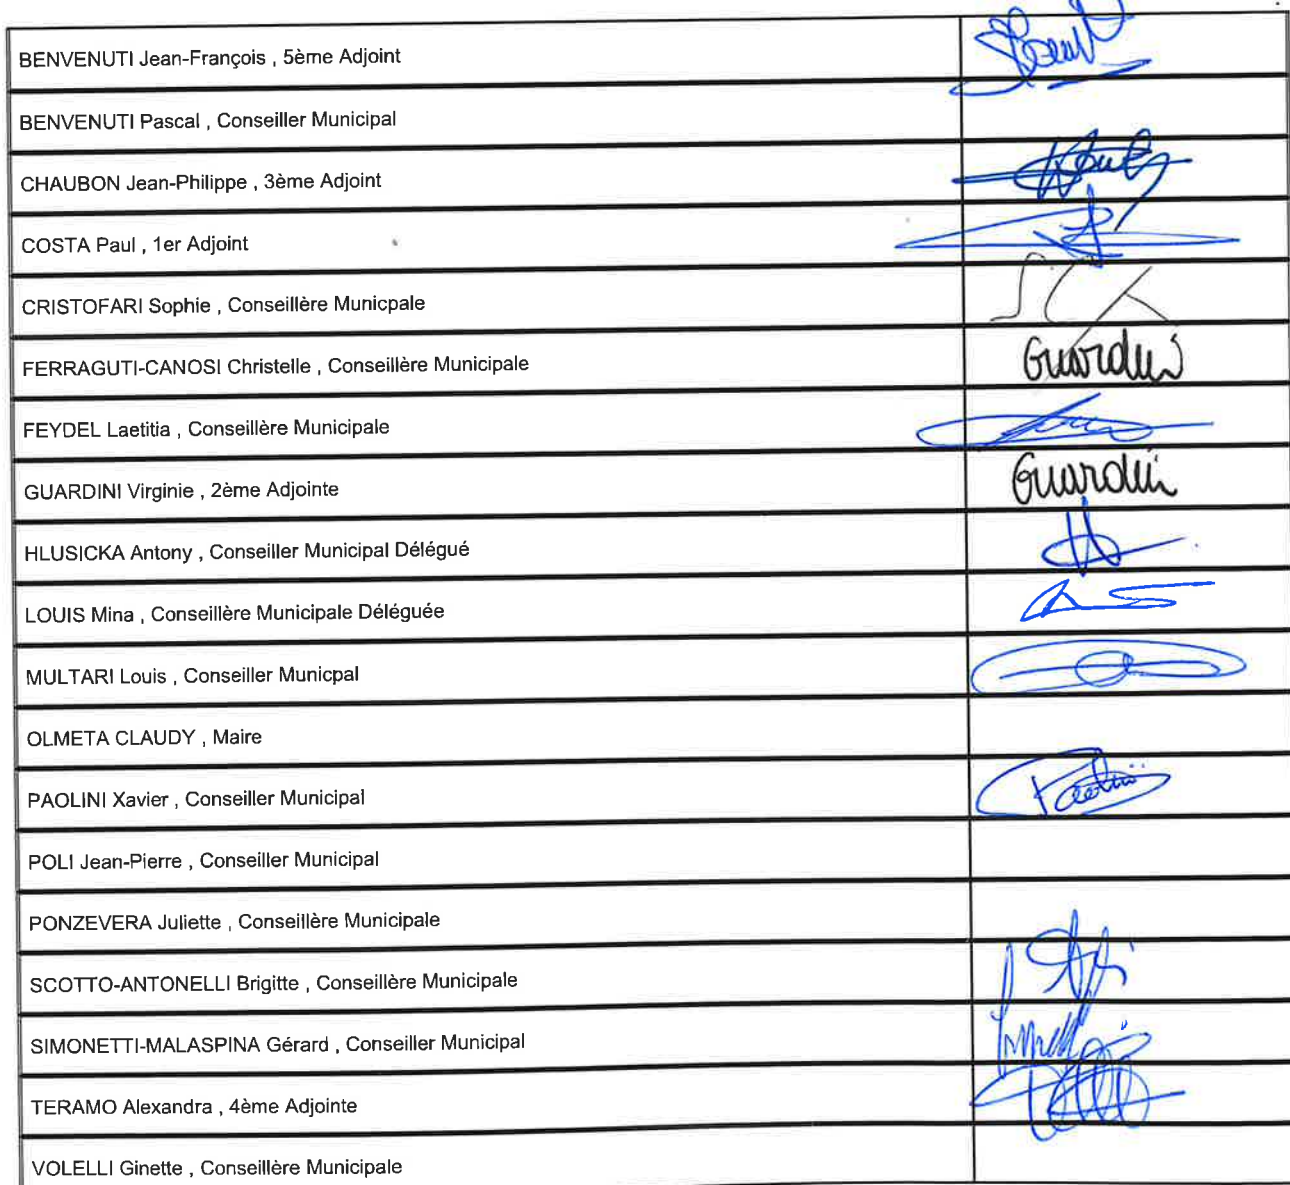 BENVENUTI Jean-François , 5ème Adjoint
BENVENUTI Pascal , Conseiller Municipal
CHAUBON Jean-Philippe , 3ème Adjoint
COSTA Paul , 1er Adjoint
CRISTOFARI Sophie , Conseillère Municpale
FERRAGUTI-CANOSI Christelle , Conseillère Municipale Guardini
FEYDEL Laetitia , Conseillère Municipale
GUARDINI Virginie , 2ème Adjointe Guardini
HLUSICKA Antony , Conseiller Municipal Délégué
LOUIS Mina , Conseillère Municipale Déléguée
MULTARI Louis , Conseiller Municpal
OLMETA CLAUDY , Maire
PAOLINI Xavier , Conseiller Municipal Paolini
POLI Jean-Pierre , Conseiller Municipal
PONZEVERA Juliette , Conseillère Municipale
SCOTTO-ANTONELLI Brigitte , Conseillère Municipale
SIMONETTI-MALASPINA Gérard , Conseiller Municipal
TERAMO Alexandra , 4ème Adjointe
VOLELLI Ginette , Conseillère Municipale